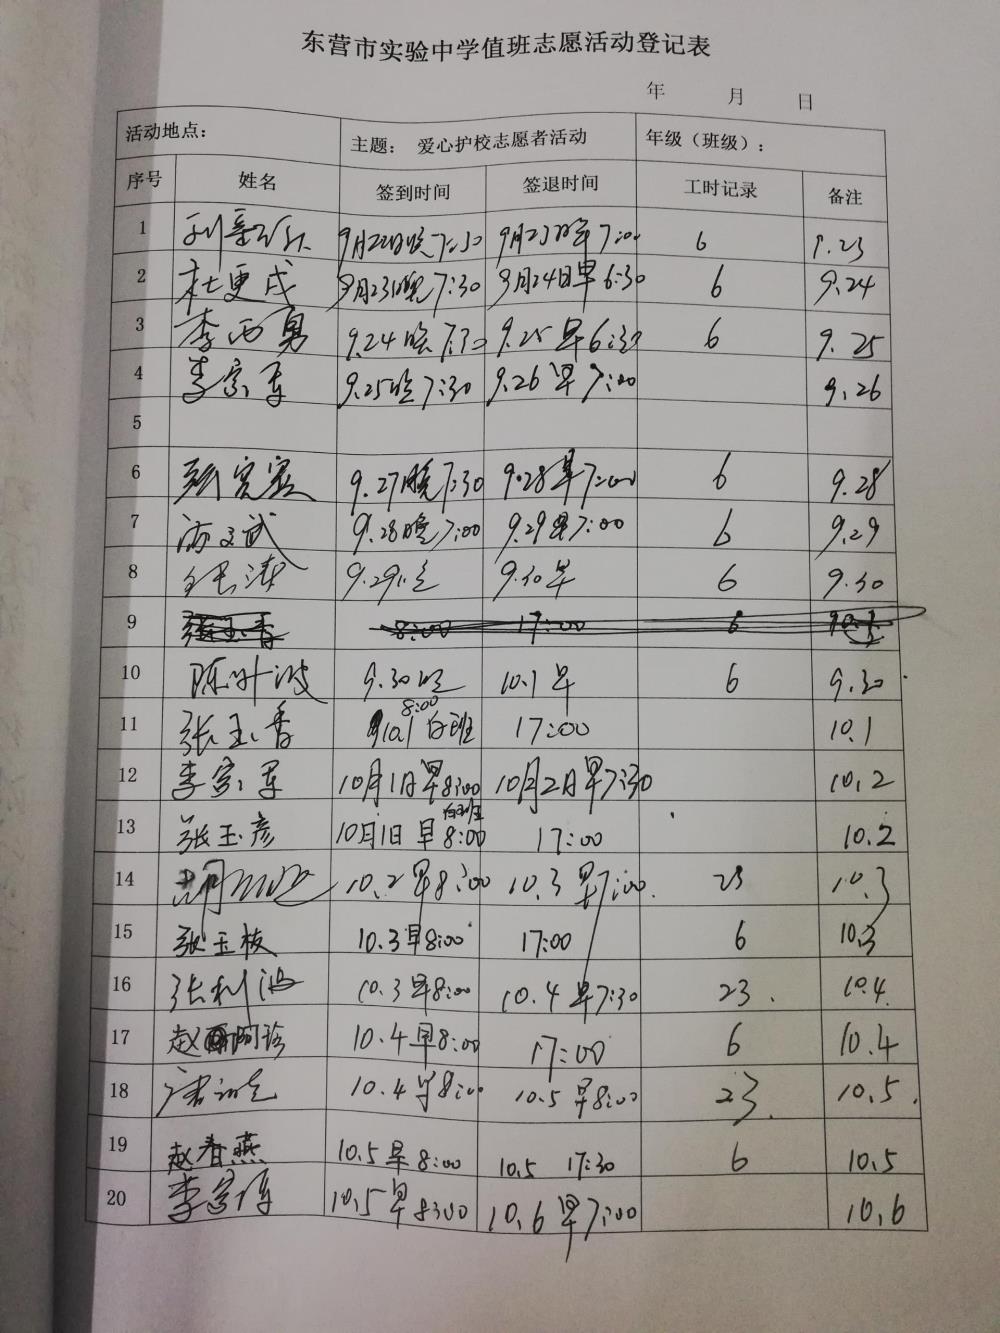 东营市实验中学值班志愿活动登记表
年 月 日
活动地点： 主题： 爱心护校志愿者活动 年级（班级）：
序号 姓名 签到时间 签退时间 工时记录 备注
1 9月22日晚7:30 9月23日早7:00 6 9.23
2 杜更戌 9月23日晚7:30 9月24日早6:30 6 9.24
3 李西勇 9.24晚7:30 9.25早6:30 6 9.25
4 李宗军 9.25晚7:30 9.26早7:00 9.26
5
6 9.27晚7:30 9.28早7:00 6 9.28
7 9.28晚7:00 9.29早7:00 6 9.29
8 9.29晚 9.30早 6 9.30
9 张玉香 8:00 17:00 6 10.1
10 陈叶波 9.30晚 10.1早 6 9.30
11 张玉香 10.1 8:00 白班 17:00 10.1
12 李宗军 10月1日早8:00 10月2日早7:30 10.2
13 张玉彦 10月1日早8:00 白班 17:00 10.2
14 10.2早8:00 10.3早7:00 23 10.3
15 张玉枝 10.3早8:00 17:00 6 10.3
16 张利波 10.3早8:00 10.4早7:30 23 10.4
17 赵阿珍 10.4早8:00 17:00 6 10.4
18 10.4早8:00 10.5早8:00 23 10.5
19 赵春燕 10.5早8:00 10.5 17:30 6 10.5
20 李宗军 10.5早8:00 10.6早7:00 10.6